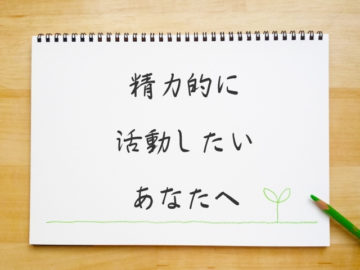 精力的に
活動したい
あなたへ